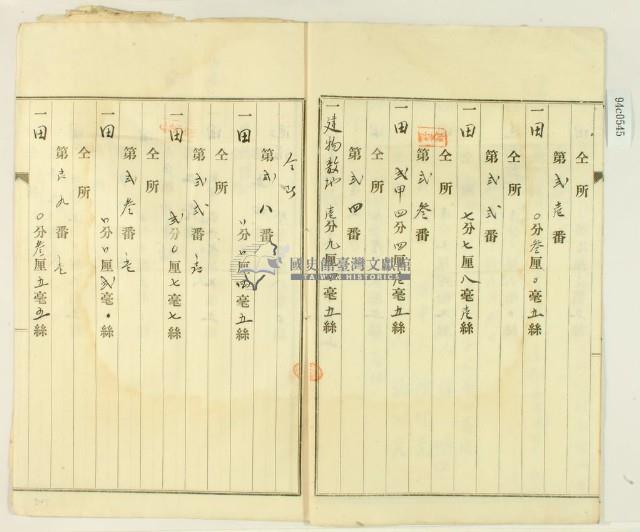 仝所
第弐壱番
一田 〇分叄厘〇毫五絲
仝所
第弐弐番
一田 七分七厘八毫壱絲
仝所
第弐叄番
一田 弐甲四分四厘壱毫五絲
仝所
第弐四番
一建物敷地 壱分九厘 毫五絲
仝所
第弐八番
一田 〇分〇厘四毫五絲
仝所
第弐弐番ノ
一田 弐分〇厘七毫七絲
仝所
第弐叄番ノ
一田 〇分〇厘弐毫〇絲
仝所
第壱九番ノ
一田 〇分叄厘五毫五絲
國史館臺灣文獻館
TAIWAN HISTORICA
94c0545